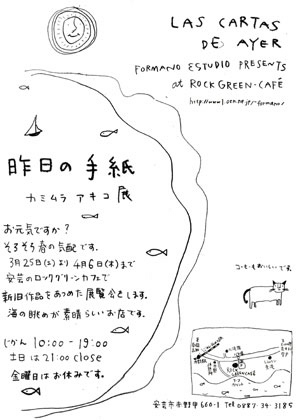 LAS CARTAS
DE AYER
FORMANO ESTUDIO PRESENTS
at ROCK GREEN-CAFÉ
昨日の手紙
カミムラ アキコ 展
お元気ですか?
そろそろ春の気配です。
3月25日(土)より 4月6日(木)まで
安芸のロックグリーンカフェで
新旧作品をあつめた展覧会をします。
海の眺めが素晴らしいお店です。
じかん 10:00-19:00
土日は21:00 close
金曜日はお休みです。
コーヒーもおいしいです。
ROCK
GREEN CAFE
Tel 0887-34-3185